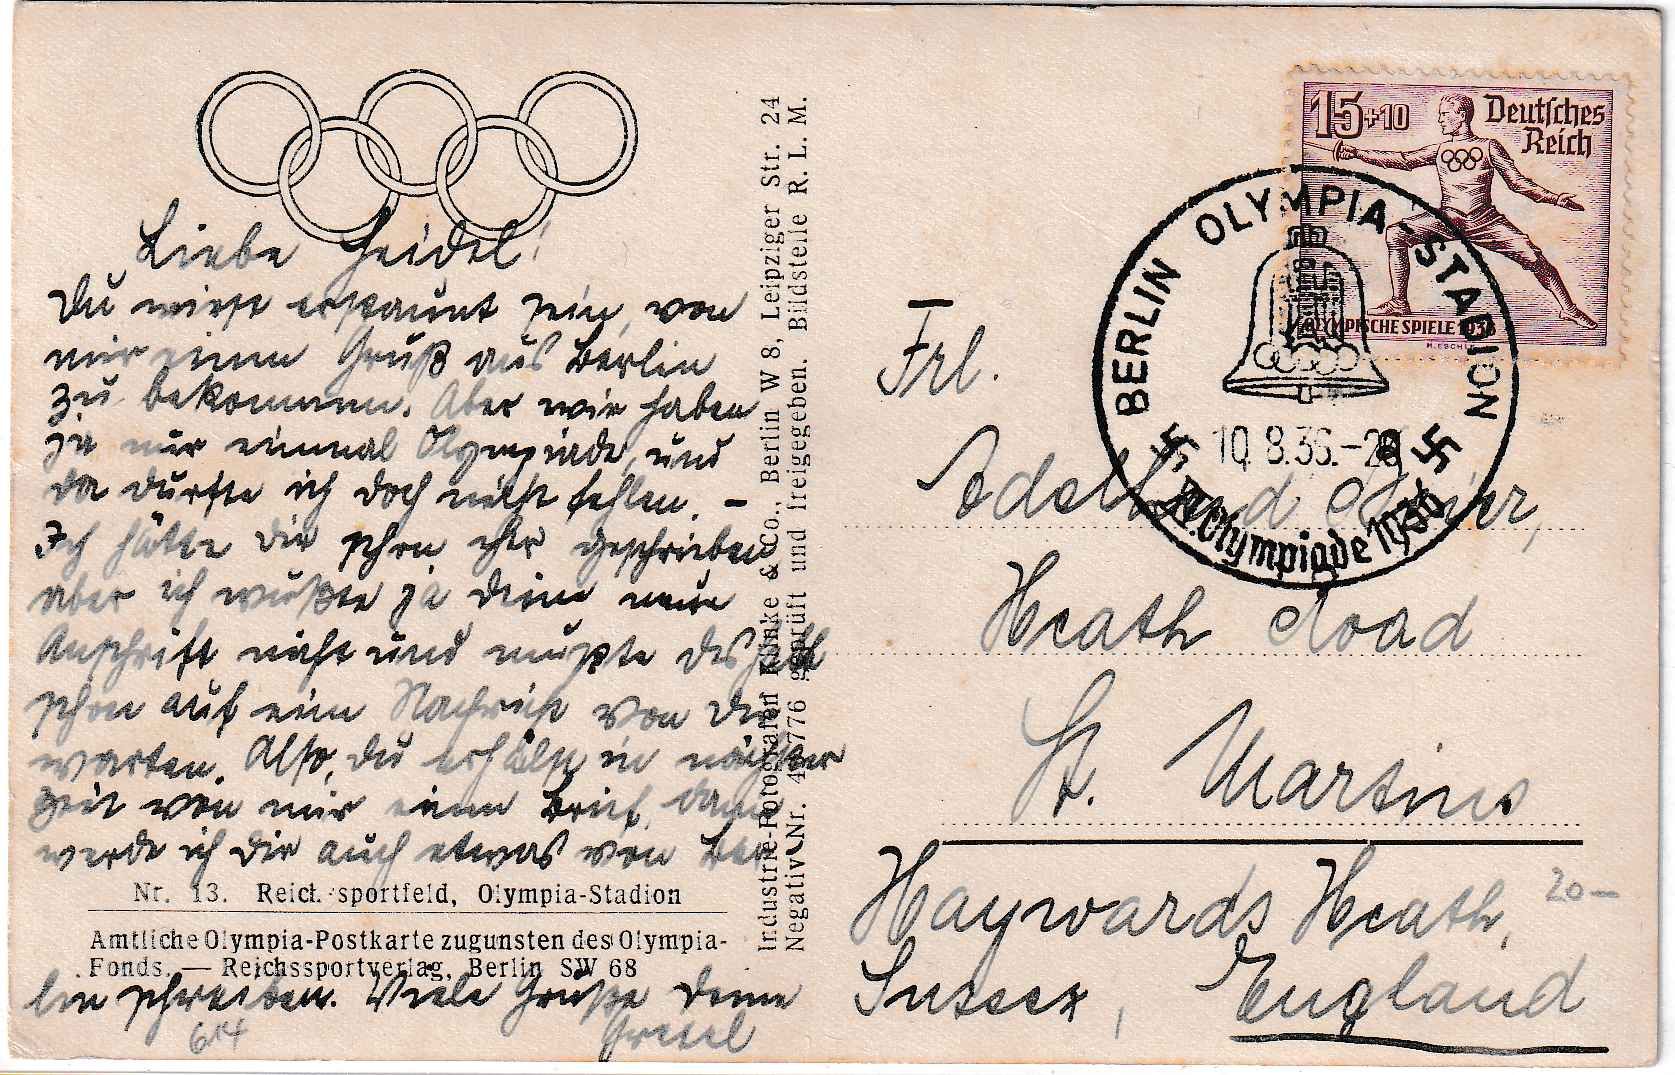 Liebe Heidel!
Du wirst erstaunt sein, von
mir einen Gruß aus Berlin
zu bekommen. Aber wir haben
ja nur einmal Olympiade, und
da durfte ich doch nicht fehlen. –
Ich hätte Dir schon eher geschrieben
aber ich wußte ja deine neue
Anschrift nicht und mußte deshalb
schon auf eine Nachricht von Dir
warten. Also, du erhälst in nächster
Zeit von mir einen Brief, dann
werde ich Dir auch etwas von Ber
Nr. 13. Reichssportfeld, Olympia-Stadion
Amtliche Olympia-Postkarte zugunsten des Olympia-
Fonds. — Reichssportverlag, Berlin SW 68
lin schreiben. Viele Grüße Deine
Gretel
614
Industrie-Fotografen Klinke & Co., Berlin W 8, Leipziger Str. 24
Negativ Nr. 776 geprüft und freigegeben. Bildstelle R. L. M.
15+10 Deutsches
Reich
OLYMPISCHE SPIELE 1936
BERLIN OLYMPIA-STADION
10.8.36.-20
XI. Olympiade 1936
Frl.
Adelheid Meier,
Heath Road
St. Martins
Haywards Heath,
20—
Sussex, England